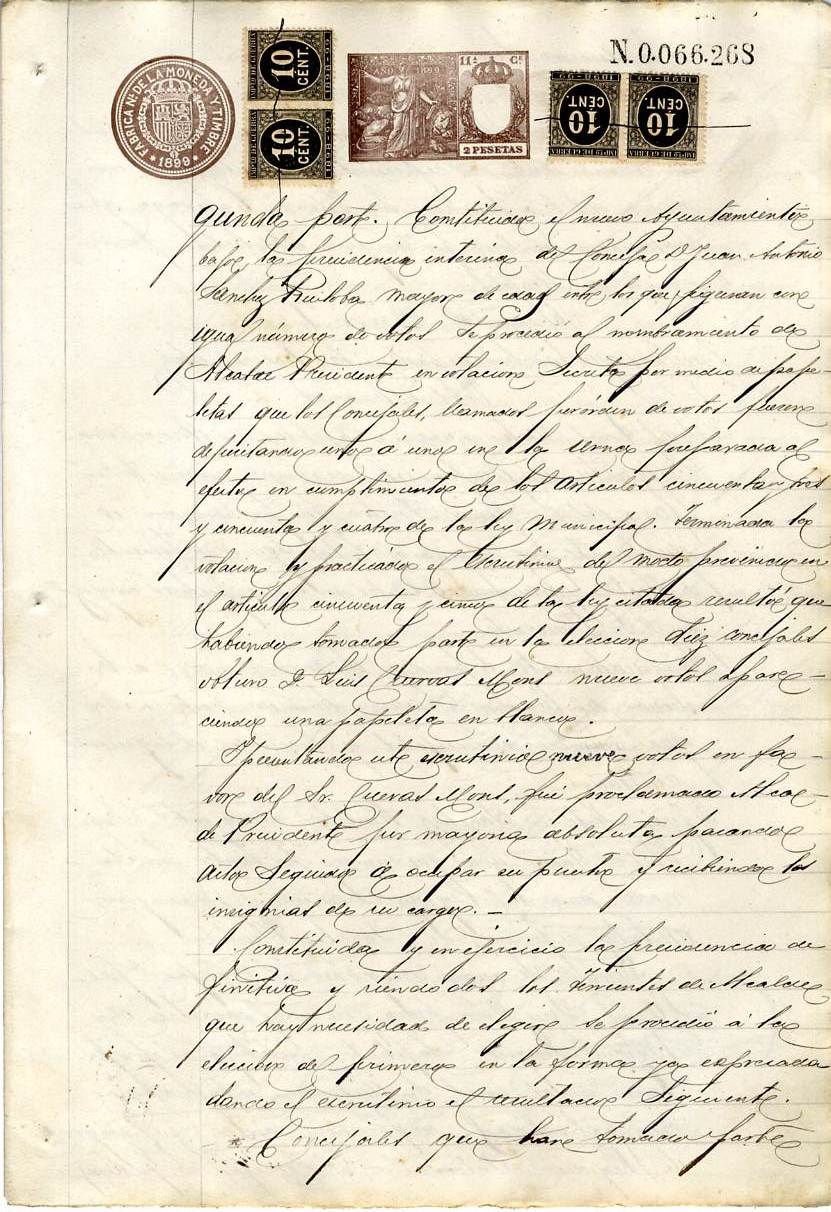 N.0.066.268
FABRICA NL. DE LA MONEDA Y TIMBRE
* 1899 *
IMPTO DE GUERRA
10 CÉNT.
1898-99
IMPTO DE GUERRA
10 CÉNT.
1898-99
AÑO 1899
11ª Cª
2 PESETAS
1898-99
10 CENT.
IMPTO DE GUERRA
1898-99
10 CENT.
IMPTO DE GUERRA
gunda part. Constituido el nuevo Ayuntamiento
bajo la presidencia interina del Concejal D. Juan Antonio
Sanchez Ruiloba mayor de edad entre los que figuran con
igual número de votos se procedió al nombramiento de
Alcalde Presidente en votacion Secreta por medio de pape-
letas que los Concejales, llamados por órden de votos fueron
depositando uno á uno en la urna preparada al
efecto en cumplimiento de los articulos cincuenta y tres
y cincuenta y cuatro de la ley Municipal. Terminada la
votacion y practicado el escrutinio del modo prevenido en
el articulo cincuenta y cinco de la ley citada resultó que
habiendo tomado parte en la eleccion diez concejales
obtuvo D. Luis Cuevas Mons nueve votos apare-
ciendo una papeleta en blanco.
Y resultando de este escrutinio nueve votos en fa-
vor del Sr. Cuevas Mons, fué proclamado Alcal-
de Presidente por mayoria absoluta pasando
acto Seguido á ocupar su puesto y recibiendo las
insignias de su cargo. -
Constituida y en ejercicio la presidencia de
finitiva y siendo dos los Tenientes de Alcalde
que hay necesidad de elegir se procedió á la
eleccion del primero en la forma ya expresada
dando el escrutinio el resultado Siguiente.
Concejales que han tomado parte